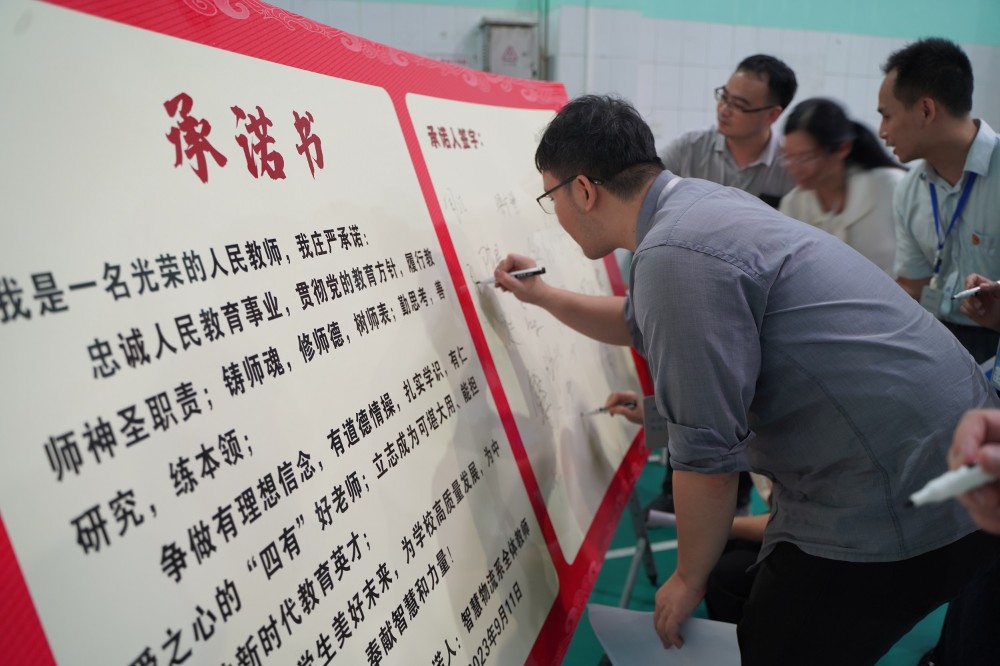 承诺书
我是一名光荣的人民教师，我庄严承诺：
忠诚人民教育事业，贯彻党的教育方针，履行教
师神圣职责；铸师魂，修师德，树师表；勤思考，善
研究，练本领；
争做有理想信念，有道德情操，扎实学识，有仁
爱之心的“四有”好老师；立志成为可堪大用、能担
新时代教育英才；
学生美好未来，为学校高质量发展，为中
奉献智慧和力量！
诺人：智慧物流系全体教师
2023年9月11日
承诺人签字：